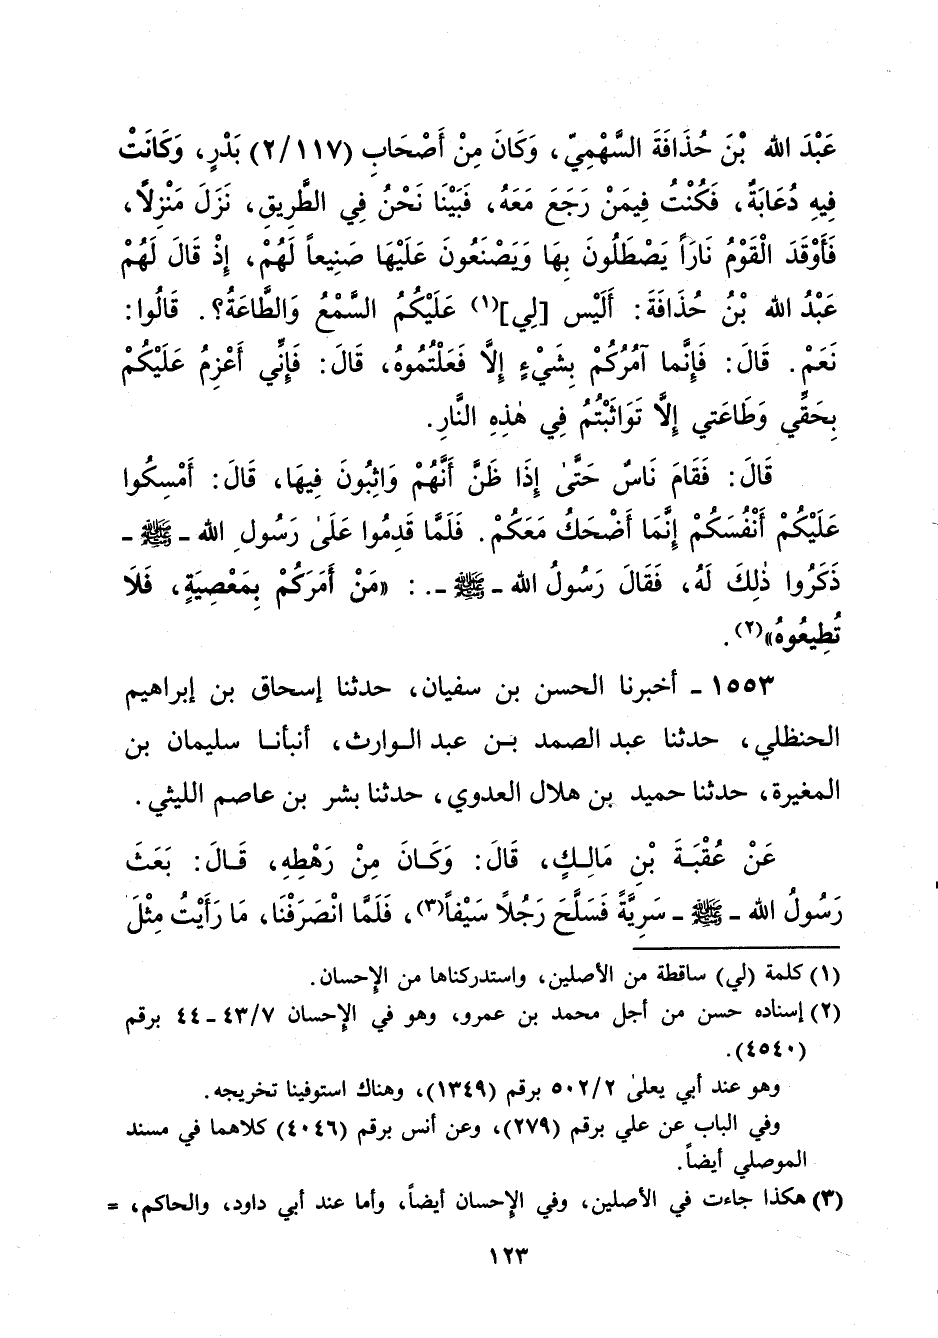 عَبْدَ الله بْنَ حُذَافَةَ السَّهْمِيّ، وَكَانَ مِنْ أَصْحَابِ (٢/١١٧) بَدْرٍ، وَكَانَتْ
فِيهِ دُعَابَةٌ، فَكُنْتُ فِيمَنْ رَجَعَ مَعَهُ، فَبَيْنَا نَحْنُ فِي الطَّرِيقِ، نَزَلَ مَنْزِلاً،
فَأَوْقَدَ الْقَوْمُ نَارَاً يَصْطَلُونَ بِهَا وَيَصْنَعُونَ عَلَيْهَا صَنِيعاً لَهُمْ، إِذْ قَالَ لَهُمْ
عَبْدُ الله بْنُ حُذَافَةَ: أَلَيْس [لِي](١) عَلَيْكُمُ السَّمْعُ وَالطَّاعَةُ؟. قَالُوا:
نَعَمْ. قَالَ: فَإِنَّما آمُرُكُمْ بِشَيْءٍ إِلَّا فَعَلْتُموهُ، قَالَ: فَإِنِّي أَعْزِمُ عَلَيْكُمْ
بِحَقِّي وَطَاعَتي إِلَّا تَوَاثَبْتُمْ فِي هٰذِهِ النَّارِ.
قَالَ: فَقَامَ نَاسٌ حَتَّىٰ إِذَا ظَنَّ أَنَّهُمْ وَاثِبُونَ فِيهَا، قَالَ: أَمْسِكُوا
عَلَيْكُمْ أَنْفُسَكُمْ إِنَّمَا أَضْحَكُ مَعَكُمْ. فَلَمَّا قَدِمُوا عَلَىٰ رَسُولِ الله ـ ﷺ ـ
ذَكَرُوا ذٰلِكَ لَهُ، فَقَالَ رَسُولُ الله ـ ﷺ ـ. : «مَنْ أَمَرَكُمْ بِمَعْصِيَةٍ، فَلَا
تُطِيعُوهُ»(٢).
١٥٥٣ ـ أخبرنا الحسن بن سفيان، حدثنا إسحاق بن إبراهيم
الحنظلي، حدثنا عبد الصمد بن عبد الوارث، أنبأنا سليمان بن
المغيرة، حدثنا حميد بن هلال العدوي، حدثنا بشر بن عاصم الليثي.
عَنْ عُقْبَةَ بْنِ مَالِكٍ، قَالَ: وَكَانَ مِنْ رَهْطِهِ، قَالَ: بَعَثَ
رَسُولُ الله ـ ﷺ ـ سَرِيَّةً فَسَلَّحَ رَجُلاً سَيْفاً(٣)، فَلَمَّا انْصَرَفْنَا، مَا رَأَيْتُ مِثْلَ
(١) كلمة (لي) ساقطة من الأصلين، واستدركناها من الإحسان.
(٢) إسناده حسن من أجل محمد بن عمرو، وهو في الإحسان ٤٣/٧ ـ ٤٤ برقم
(٤٥٤٠).
وهو عند أبي يعلىٰ ٥٠٢/٢ برقم (١٣٤٩)، وهناك استوفينا تخريجه.
وفي الباب عن علي برقم (٢٧٩)، وعن أنس برقم (٤٠٤٦) كلاهما في مسند
الموصلي أيضاً.
(٣) هكذا جاءت في الأصلين، وفي الإحسان أيضاً، وأما عند أبي داود، والحاكم، =
١٢٣